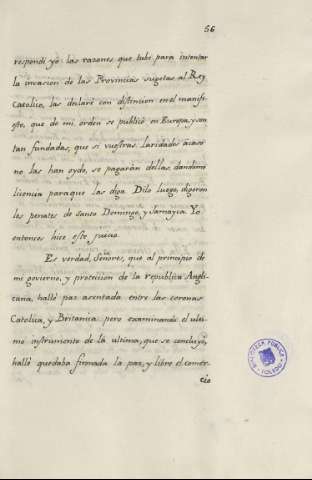 56
respondi yo las razones que tube para intentar
la invasion de las Provincias sugetas al Rey
Catolico, las declaré con distincion en el manifi-
esto, que de mi orden se publicó en Europa, y son
tan fundadas, que si vuestras Laridades acaso
no las han oydo, se pagarán dellas, dandome
licencia para que las diga. Dilo luego, digeron
los penates de Santo Domingo, y Jamayca. Yo
entonces hice este juicio.
Es verdad, Señores, que al principio de
mi govierno, y proteccion de la republica Angli-
cana, hallé paz asentada entre las coronas
Catolica, y Britanica pero examinando el ulti-
mo instrumento de la ultima, que se concluyó,
hallé quedaba firmada la paz, y libre el comer-
cio
BIBLIOTECA PUBLICA
TOLEDO